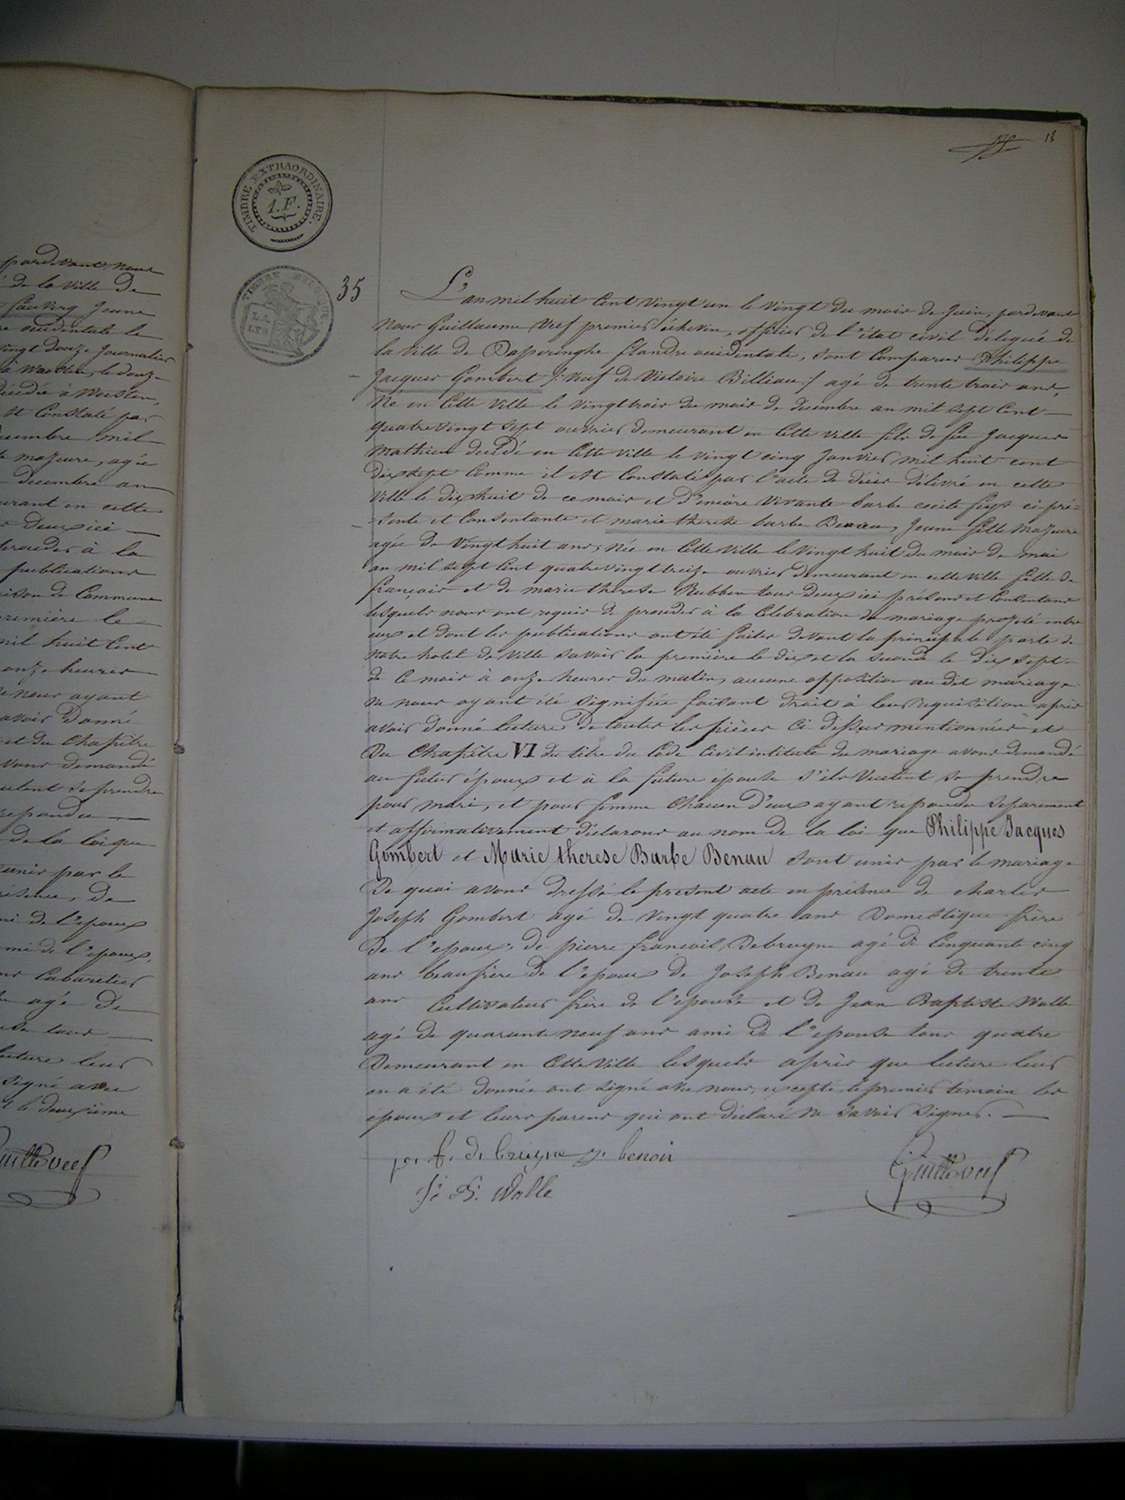 pardevant nous
de la ville de
jeune
occidentale le
vingt douze journalier
décédé à Westen
et constaté par
décembre mil
majeure, agée
decembre an
demeurant en cette
deux ici
proceder à la
publications
maison de commune
première le
mil huit cent
onze heures
nous ayant
avoir donné
et du chapitre
avons demandé
veulent se prendre
repondu
de la loi que
unis par le
présence, de
ami de l'epoux
ami de l'epoux,
cabaretier
agé de
tous
lecture leur
signé avec
et le deuxième
Guille Vref
18
TIMBRE EXTRAORDINAIRE.
1. F.
35
L'an mil huit cent vingt un le vingt du mois de Juin, pardevant
Nous Guillaume Vref premier échevin, officier de l'état civil délegué de
la ville de Popperinghe flandre occidentale, sont comparus Philippe
Jacques Gombert /: Veuf de Victoire Billiau :/ agé de trente trois ans,
Né en cette ville le vingt trois du mois de decembre an mil sept cent
quatre vingt sept ouvrier demeurant en cette ville fils de feu Jacques
Mathieu decédé en cette ville le vingt cinq Janvier mil huit cent
dix sept comme il est constaté par l'acte de décès délivré en cette
ville le dix huit de ce mois et d'encore vivante barbe cecile ici pré-
-sente et consentante et marie therese barbe Benau, Jeune fille majeure
agée de vingt huit ans, née en cette ville le vingt huit du mois de mai
an mil sept cent quatre vingt treize ouvrière demeurant en cette ville fille de
francois et de marie therese Rubben tous deux ici présens et consentans
lesquels nous ont requis de proceder à la célébration du mariage projeté entre
eux et dont les publications ont été faites devant la principale porte de
notre hotel de ville savoir la première le dix et la seconde le dix sept
de ce mois à onze heures du matin, aucune opposition au dit mariage
ne nous ayant été signifiée faisant droit à leur requisition après
avoir donné lecture de toutes les pièces ci dessus mentionnées et
du chapitre VI du titre du Code Civil intitulé du mariage avons demandé
au futur époux et à la future épouse s'ils veulent se prendre
pour mari, et pour femme chacun d'eux ayant repondu separement
et affirmativement declarons au nom de la loi que Philippe Jacques
Gombert et Marie therese Barbe Benau sont unis par le mariage
De quoi avons dressé le present acte en présence de charles
Joseph Gombert agé de vingt quatre ans Domestique frère
de l'epoux, de pierre francois Debruyne agé de cinquante cinq
ans beaufrère de l'epoux de Joseph Benau agé de trente
ans Cultivateur frère de l'épouse et de Jean Baptiste Walle
agé de quarante neuf ans ami de l'epouse tous quatre
Demeurant en cette ville lesquels après que lecture leur
en a été donnée ont signé avec nous, excepté le premier témoin les
epoux et leurs parens qui ont declaré ne savoir signer.
p. f. de bruyne j. benoi
J: B: Walle
Guille Vref